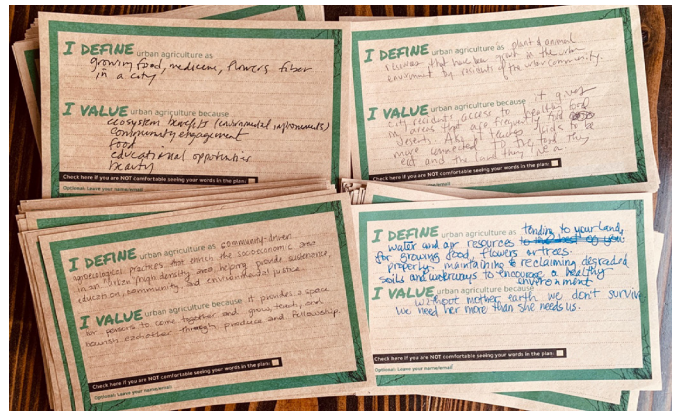 I DEFINE urban agriculture as
growing food, medicine, flowers fiber
in a city
I VALUE urban agriculture because
ecosystem benefits (environmental improvements)
community engagement
food
educational opportunities
beauty
Check here if you are NOT comfortable seeing your words in the plan:
Optional: Leave your name/email
I DEFINE urban agriculture as plant & animal
that have been grown in the urban
environment by residents of the urban community.
I VALUE urban agriculture because it gives
city residents access to healthy food
in areas that are frequently food
deserts. Also it teaches kids to be
more connected to the food they
eat and the land they live
Check here if you are NOT comfortable seeing your words in the plan:
Optional: Leave your name/email
I DEFINE urban agriculture as community-driven
agroecological practices that enrich the socioeconomic and
in an urban/high density area, helping provide sustenance,
education, community, and environmental justice.
I VALUE urban agriculture because it provides a space
for persons to come together and grow, teach, and
nourish eachother through produce and fellowship.
Check here if you are NOT comfortable seeing your words in the plan:
Optional: Leave your name/email
I DEFINE urban agriculture as tending to your land,
water and air resources
for growing food, flowers or trees.
properly maintaining & reclaiming degraded
soils and waterways to encourage a healthy
environment
I VALUE urban agriculture because
without mother earth we don't survive
we need her more than she needs us.
Check here if you are NOT comfortable seeing your words in the plan:
Optional: Leave your name/email